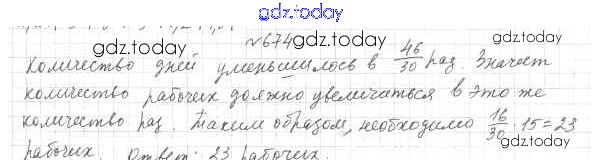 gdz.today
№674
Количество дней уменьшилось в 46/30 раз. Значит
количество рабочих должно увеличиться в это же
количество раз. Таким образом, необходимо 16/30 · 15 = 23
рабочих. Ответ: 23 рабочих.
gdz.today
gdz.today
gdz.today
gdz.today
gdz.today
gdz.today
gdz.today